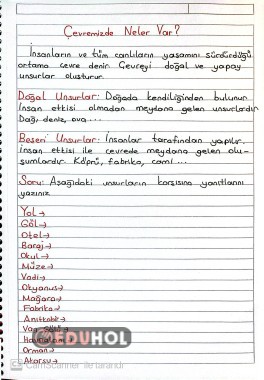 Çevremizde Neler Var?
İnsanların ve tüm canlıların yaşamını sürdürdüğü
ortama çevre denir. Çevreyi doğal ve yapay
unsurlar oluşturur.
Doğal Unsurlar: Doğada kendiliğinden bulunur.
İnsan etkisi olmadan meydana gelen unsurlardır.
Dağ, deniz, ova...
Beşeri Unsurlar: İnsanlar tarafından yapılır.
İnsan etkisi ile çevrede meydana gelen olu-
şumlardır. Köprü, fabrika, cami...
Soru: Aşağıdaki unsurların karşısına yanıtlarını
yazınız.
Yol→
Göl→
Otel→
Baraj→
Okul→
Müze→
Vadi→
Okyanus→
Mağara→
Fabrika→
Anıtkabir→
Van Gölü→
EDUHOL
Havaalanı→
Orman→
Akarsu→
CamScanner ile tarandı